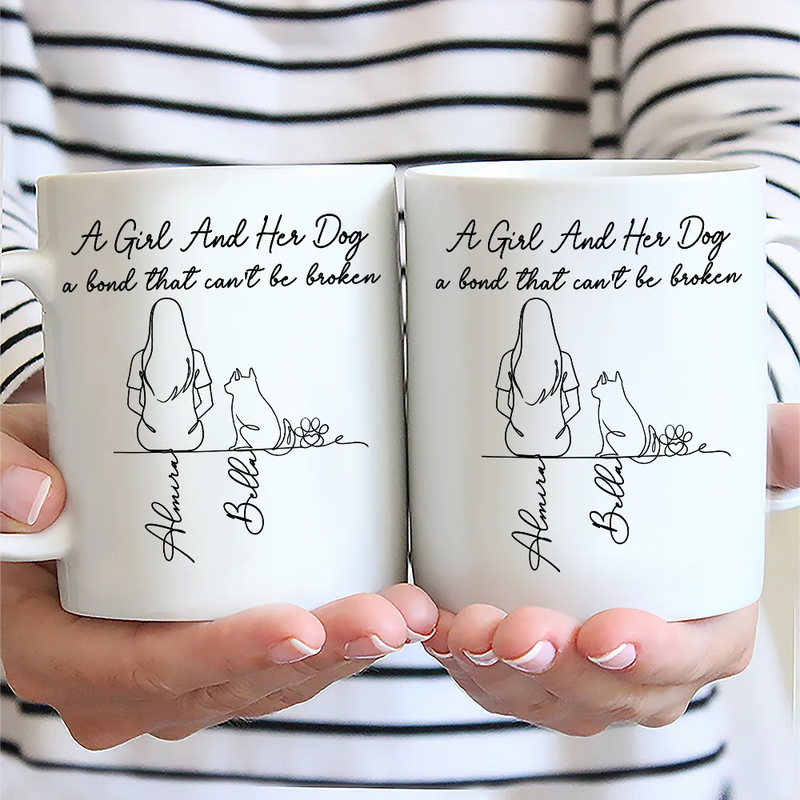 A Girl And Her Dog
a bond that can't be broken
Almira
Bella
A Girl And Her Dog
a bond that can't be broken
Almira
Bella